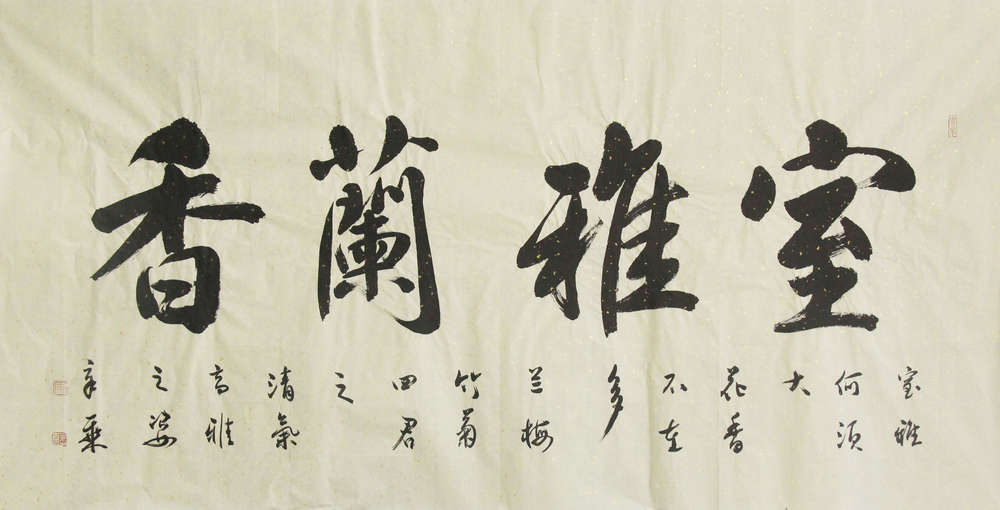 室雅蘭香
室雅
何須
大
花香
不在
多
兰梅
竹菊
四君
之
清氣
高雅
之姿